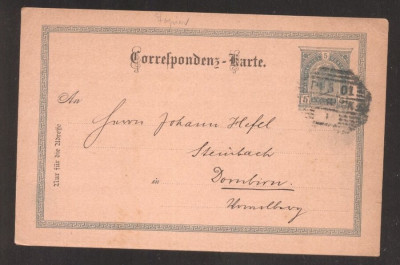 Correspondenz-Karte.
An
Herrn Johann Hefel
Steinbach
in Dornbirn
Vorarlberg
Nur für die Adresse